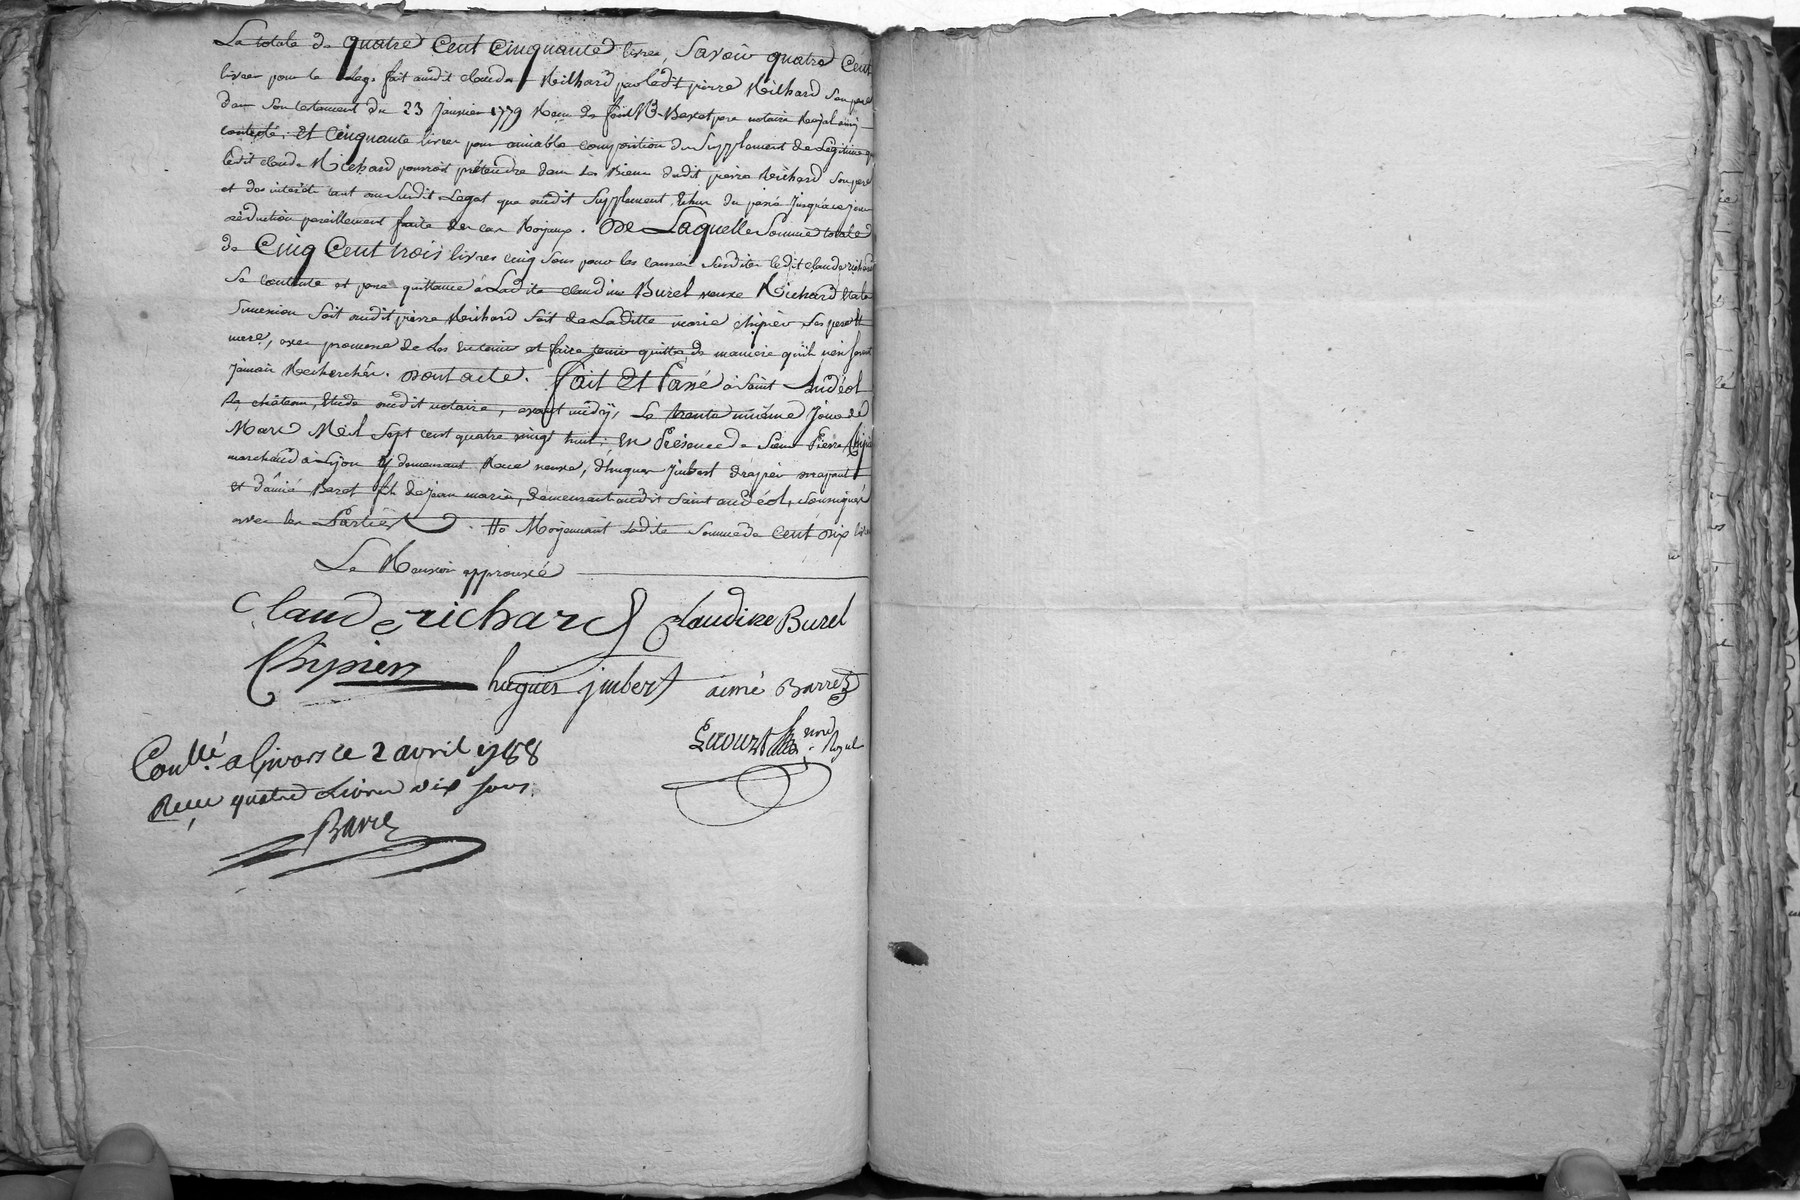 La totale de quatre Cent Cinquante livres, Savoir quatre Cent
livres pour le Legs fait audit claude Richard par ledit pierre Richard Son pere
dans Son testament du 23 Janvier 1779 Recu de feu Me Baret pere notaire Royal
controlé; Et Cinquante livres pour amiable composition du Supplement de Legitime que
ledit claude Richard pourroit prétendre dans les Biens dudit pierre Richard Son pere
et des intérêts tant au Susdit Legat que audit Supplement, Echus du passé Jusqu'à ce jour
réduction pareillement faite des cas Royaux. De Laquelle Somme totale
de Cinq Cent trois livres cinq Sous pour les causes Susdites ledit claude richard
Se contente et pase quittance à Ladite claudine Burel veuve Richard Et à la
Succession Soit audit pierre Richard Soit de Laditte marie chipier Ses pere Et
mere, avec promesse de Les En tenir et faire tenir quitte, de maniere qu'ils n'en Soient
jamais Recherchés. Dont acte. Fait Et Passé à Saint Andéol
le château, Etude dudit notaire, avant midy, Le trente unième Jour de
Mars Mil Sept cent quatre vingt huit; En Présence de Sieur Pierre Chipier
marchand à Lyon y demeurant Rue neuve, d'hugues Jmbert drapier
et d'aimé Baret fils de jean marie, demeurant audit Saint andéol, Soussignés
avec les Parties. # Moyennant Ladite Somme de Cent dix livres
Le Renvoi approuvé
Claude richard Claudine Burel
Chipier hugues jmbert aimé Barret
Conllé. a Givors ce 2 avril 1788
Recu quatre Livres dix Sous.